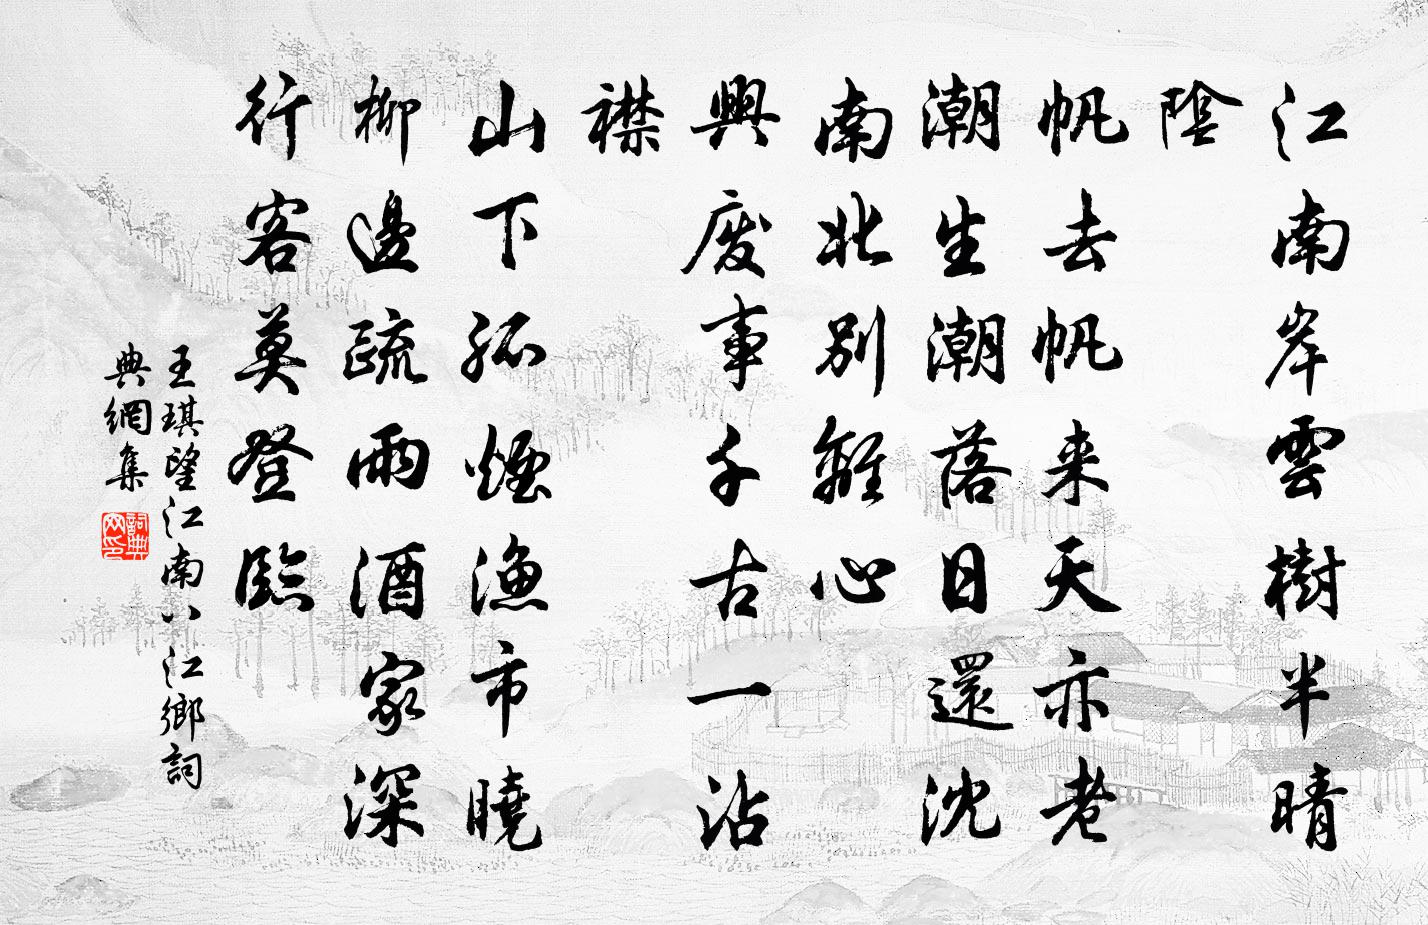 江南岸雲樹半晴
陰
帆去帆来天亦老
潮生潮落日還沈
南北別離心
興废事千古一沾
襟
山下孤煙漁市曉
柳邊疏雨酒家深
行客莫登臨
王琪望江南八江鄉詞
典網集
詞典网印